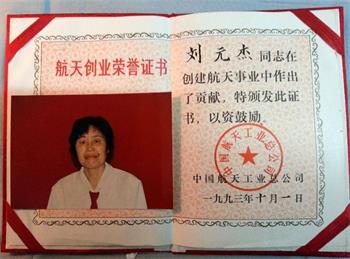 航天创业荣誉证书
刘元杰同志在
创建航天事业中作出
了贡献,特颁发此证
书,以资鼓励。
中国航天工业总公司
中国航天工业总公司
一九九三年十月一日